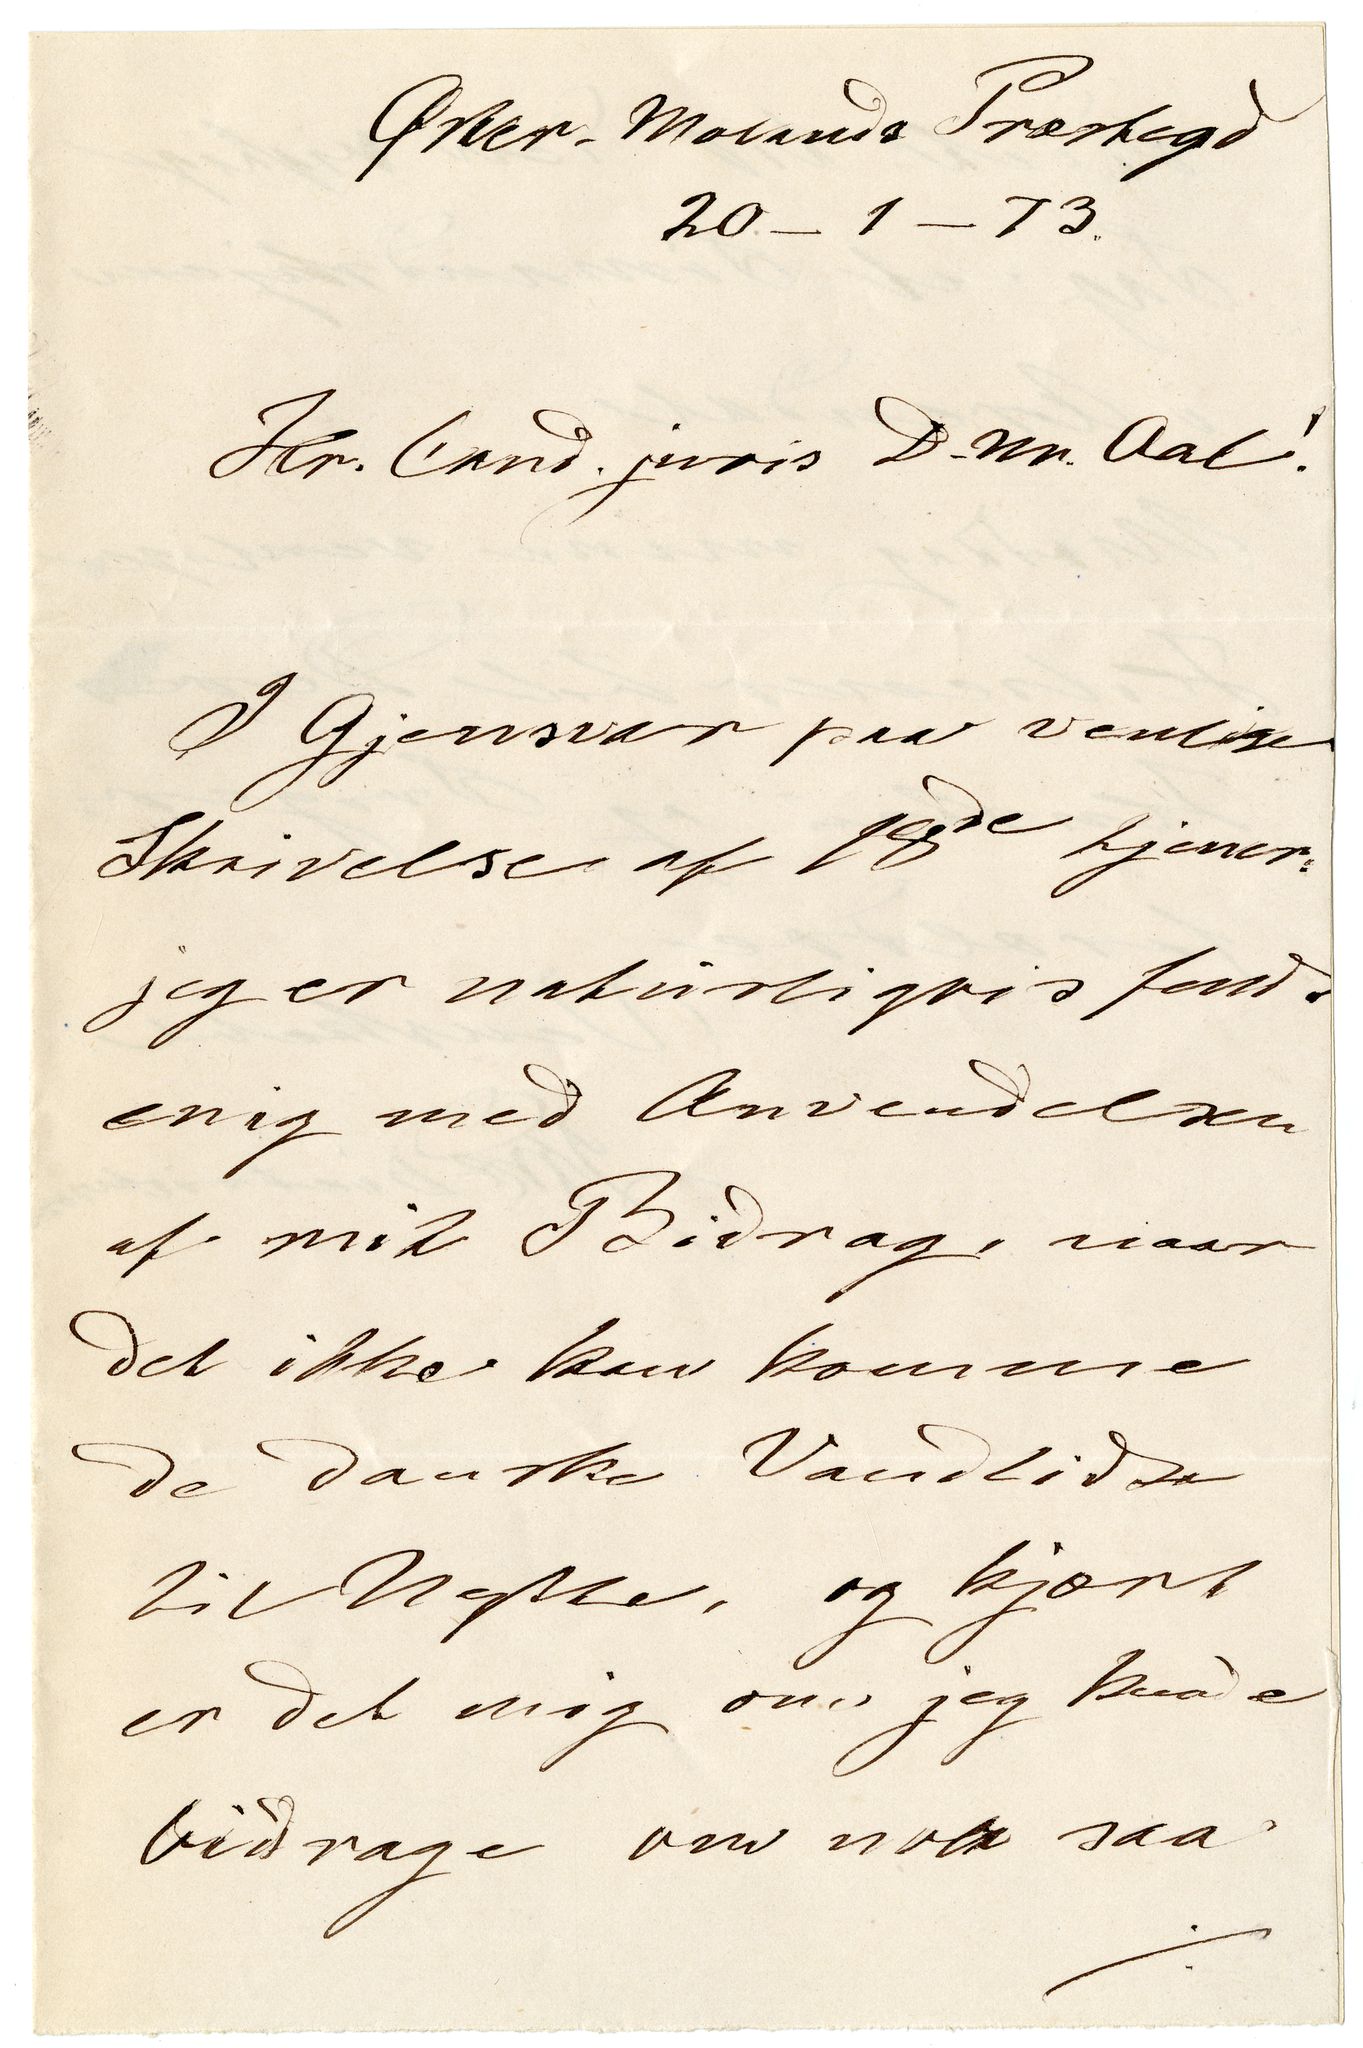 Øster-Molands Præstegd
20 - 1 - 73.
Hr. Cand. juris D. M. Aal!
I Gjensvar paa venlige
Skrivelse af 18de tjener:
jeg er naturligvis fuld-
enig med Anvendelsen
af mit Bidrag, naar
det ikke kan komme
de danske Vandlidte
til Nytte, og kjært
er det mig om jeg kunde
bidrage om nok saa